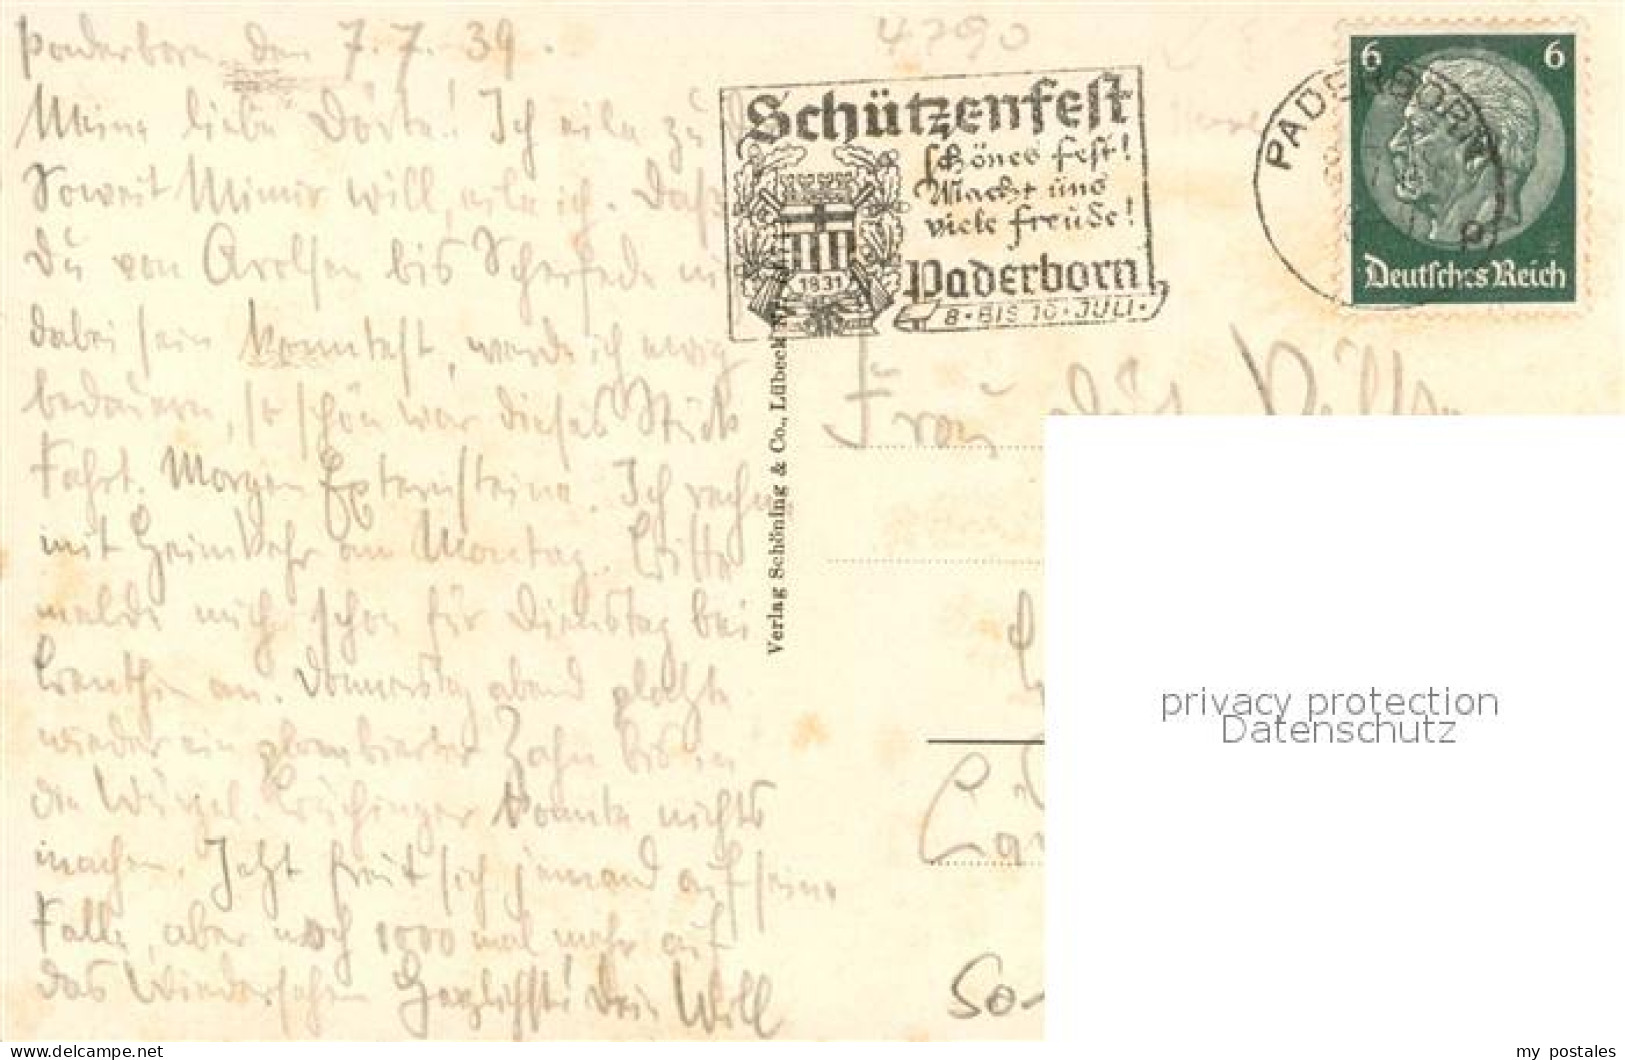 Paderborn, den 7.7.39.
Meine liebe Dörte! Ich eile zu D
Soweit Mimir will, eile ich. Daß
Du von Arolsen bis Scherfede n
dabei sein konntest, werde ich ewig
bedauern, so schön war dieses Stück
Fahrt. Morgen Externsteine. Ich rechne
mit Heimkehr am Montag. Bitte
melde mich schon für Dienstag bei
an. Donnerstag abend platzte
wieder ein plombierter Zahn bis in
die Würzel. konnte nichts
machen. Jetzt freut sich jemand auf seine
Falle, aber noch 1000 mal mehr auf
das Wiedersehen Herzlichst! Dein Will
4790
Schützenfest
Schönes Fest!
Macht uns
viele Freude!
1831
Paderborn
8. BIS 10. JULI.
PADERBORN
6 6
Deutsches Reich
Verlag Schöning & Co., Lübeck
Frau
privacy protection
Datenschutz
So-
delcampe.net
my_postales